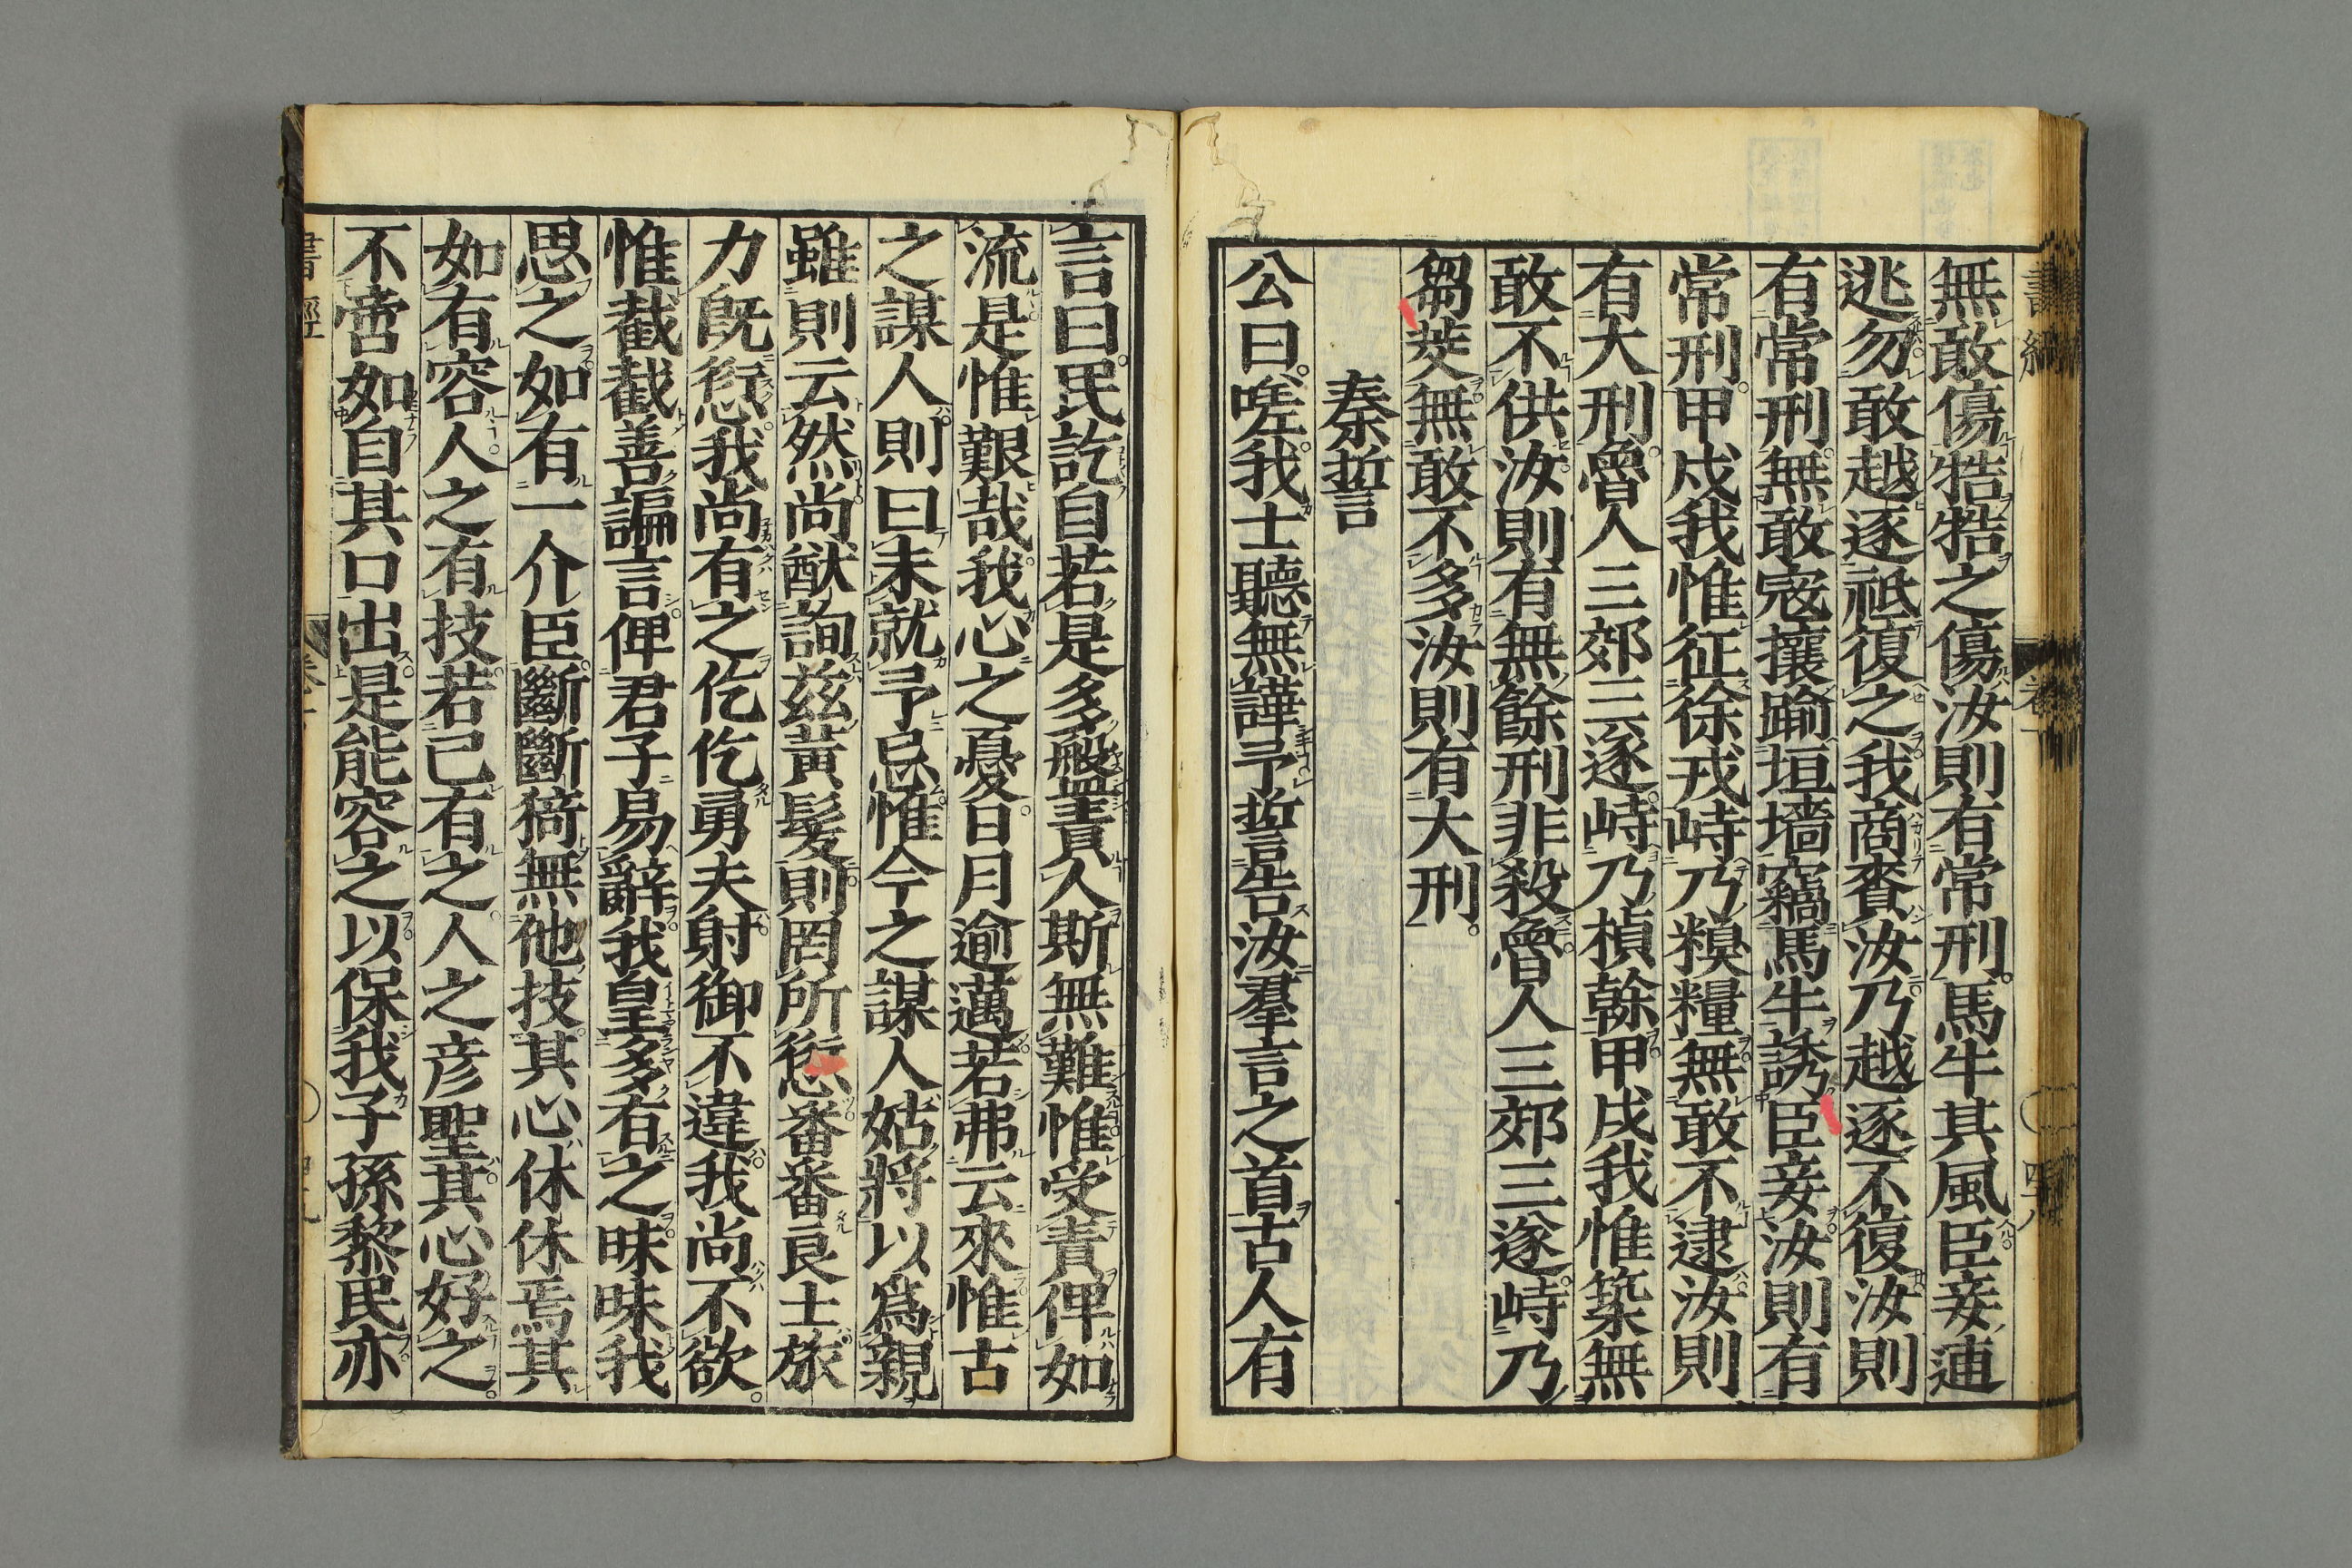 無敢傷牿牿之傷汝則有常刑。馬牛其風臣妾逋
逃勿敢越逐祗復之我商賚汝乃越逐不復汝則
有常刑。無敢寇攘踰垣墻竊馬牛誘臣妾汝則有
常刑。甲戌我惟征徐戎峙乃糗糧無敢不逮汝則
有大刑。魯人三郊三逐。峙乃楨榦甲戌我惟築無
敢不供汝則有無餘刑非殺。魯人三郊三遂。峙乃
芻茭無敢不多汝則有大刑。
秦誓
公曰。嗟。我士聽無譁予誓告汝羣言之首古人有
言曰。民訖自若是多盤責人斯無難惟受責俾如
流是惟艱哉。我心之憂。日月逾邁若弗云來惟古
之謀人則曰未就予忌惟今之謀人姑將以爲親
雖則云然尚猷詢茲黃髮則罔所愆番番良士旅
力旣愆。我尚有之仡仡勇夫射御不違我尚不欲。
惟截截善諞言俾君子易辭我皇多有之昧昧我
思之如有一介臣。斷斷猗無他技其心休休焉其
如有容人之有技若己有之人之彥聖其心好之
不啻如自其口出是能容之以保我子孫黎民亦
書經
卷
四十八